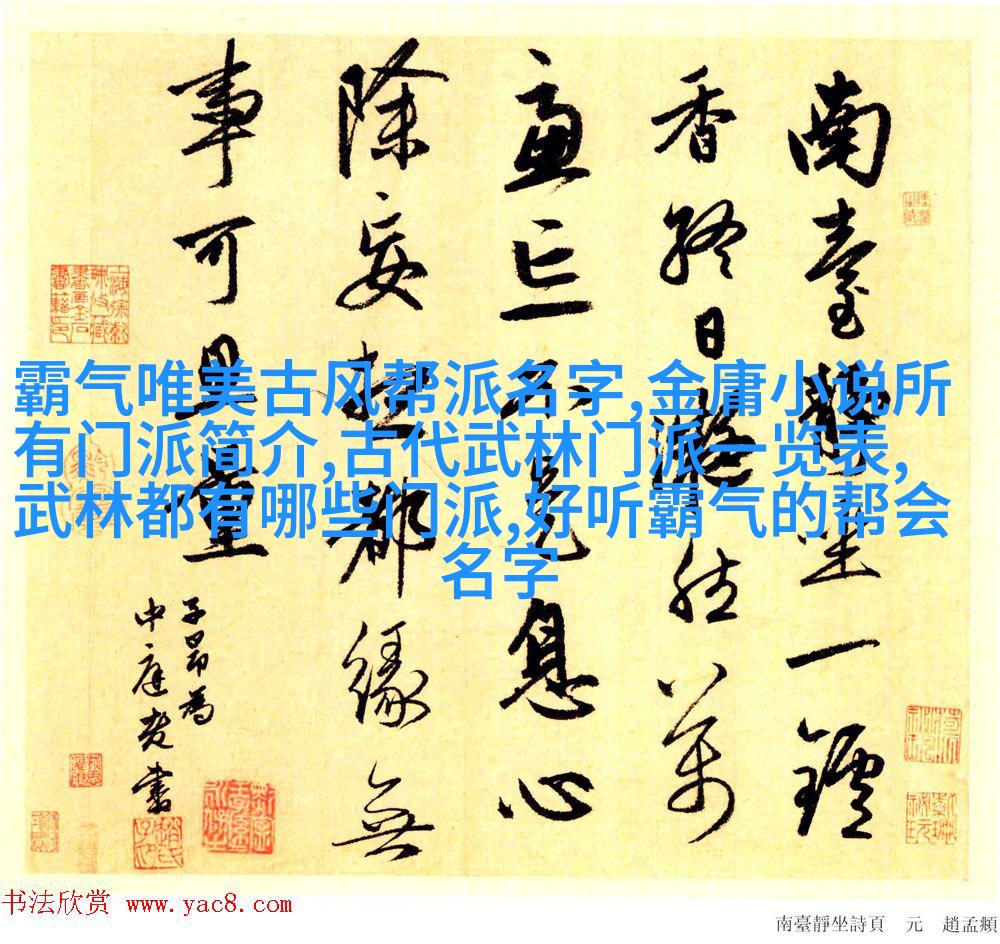 南臺靜坐一鑪
香終日凝然萬
慮亡不是息心
除妄想都緣無
事可思量
子昂為
中庭老書
霸气唯美古风帮派名字,金庸小说所
有门派简介,古代武林门派一览表,
武林都有哪些门派,好听霸气的帮会
名字
书法欣赏 www.yac8.com
南臺靜坐詩頁 元 趙孟頫